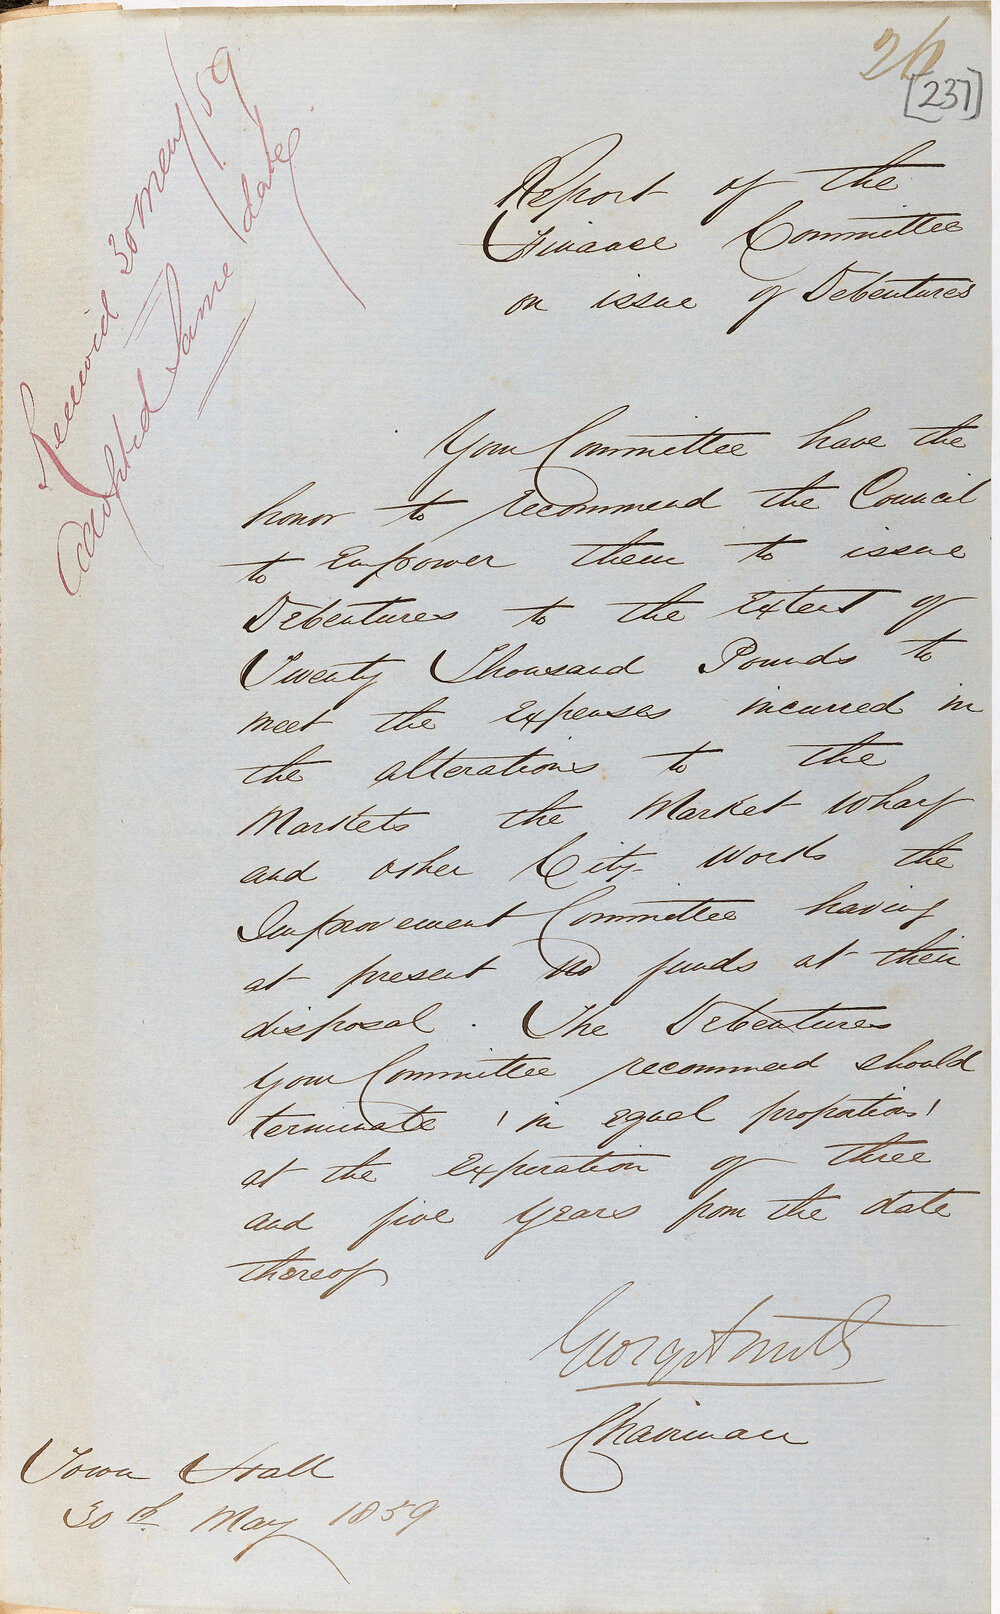 26
[237]
Received 30 May /59
adopted Same date
Report of the
Finance Committee
on issue of Debentures
Your Committee have the
honor to recommend the Council
to Empower them to issue
Debentures to the Extent of
Twenty Thousand Pounds to
meet the Expenses incurred in
the alterations to the
Markets the Market Wharf
and other City Works the
Improvement Committee having
at present no funds at their
disposal. The Debentures
your Committee recommend should
terminate (in equal proportions)
at the Expiration of three
and five years from the date
thereof
George Smith
Chairman
Town Hall
30th May 1859